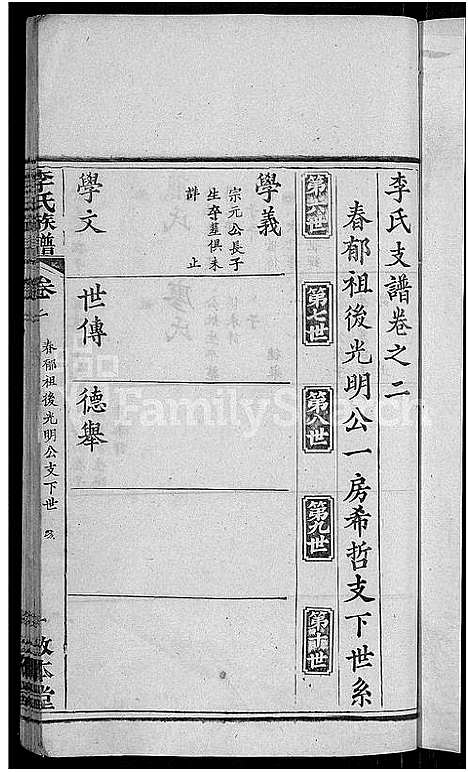 李氏支譜卷之二
春郁祖後光明公一房希哲支下世系
第六世
第七世
第八世
第九世
第十世
學義
宗元公長子
生卒葬俱未
詳 止
學文
世傳
德舉
李氏族譜
卷二
春郁祖後光明公支下世
敦本堂
FamilySearch